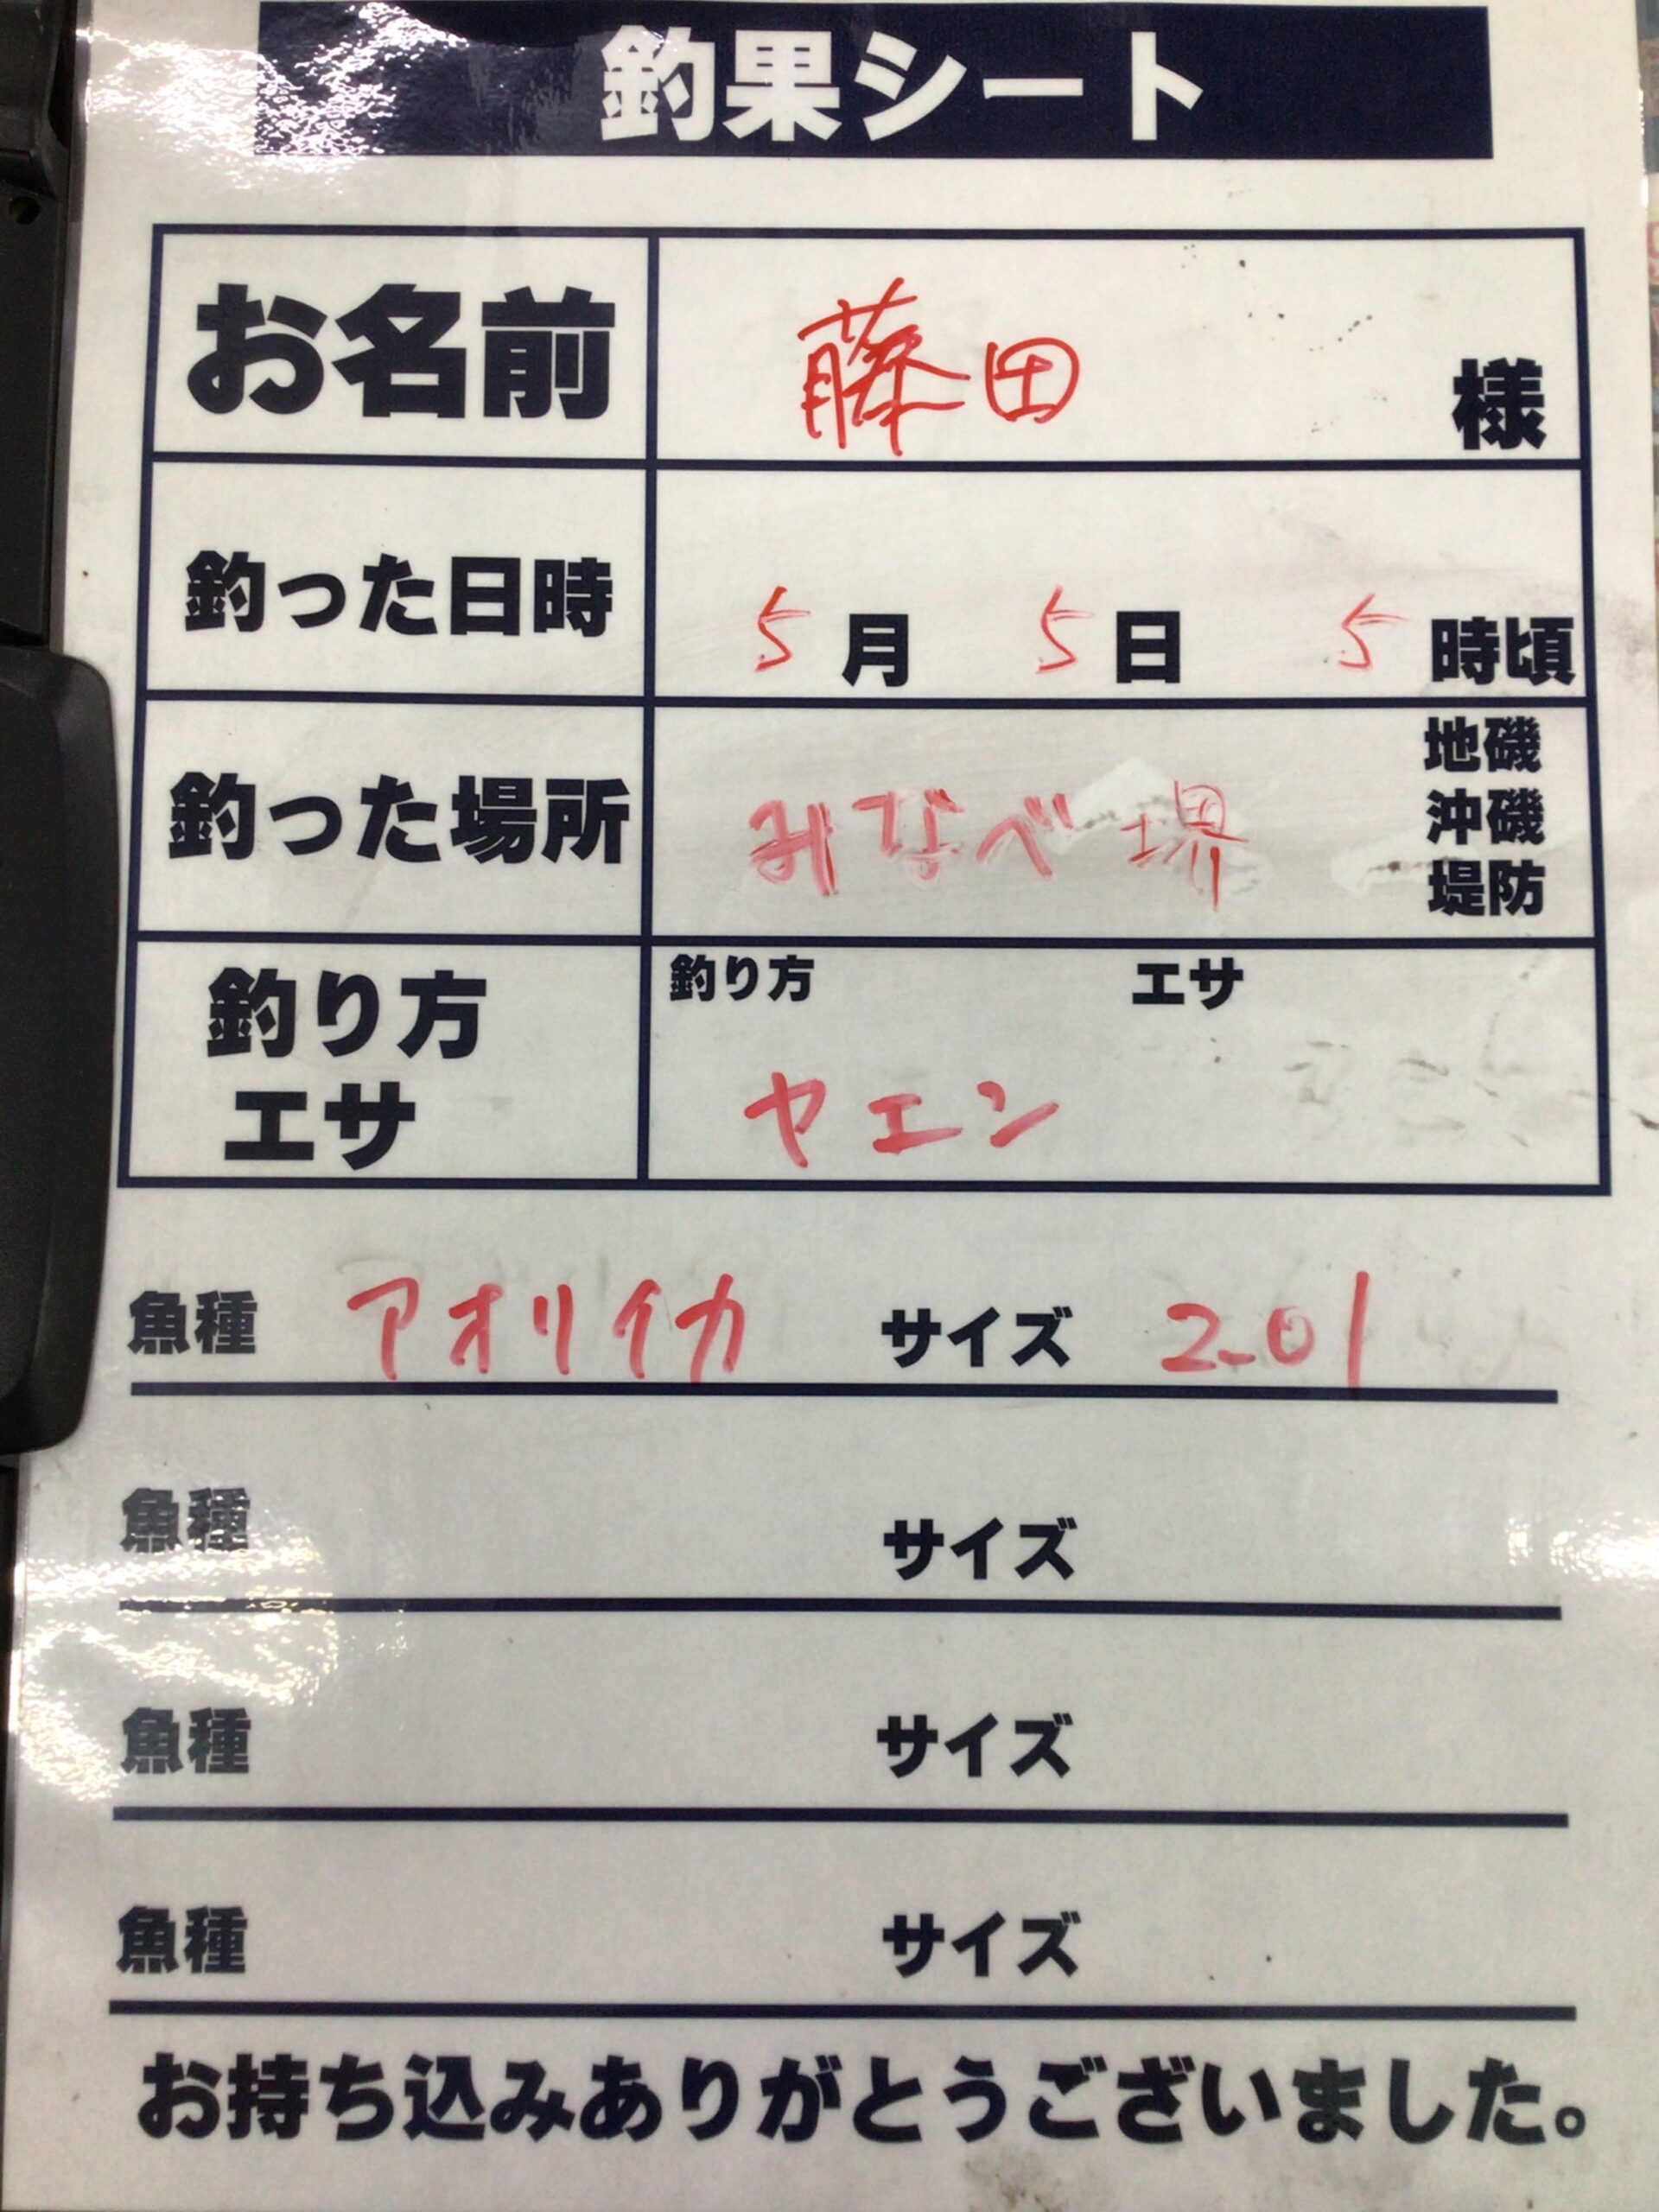 釣果シート
お名前 藤田 様
釣った日時 5月 5日 5時頃
釣った場所 みなべ堺 地磯 沖磯 堤防
釣り方 エサ
釣り方 エサ
ヤエン
魚種 アオリイカ サイズ 2.01
魚種 サイズ
魚種 サイズ
魚種 サイズ
お持ち込みありがとうございました。